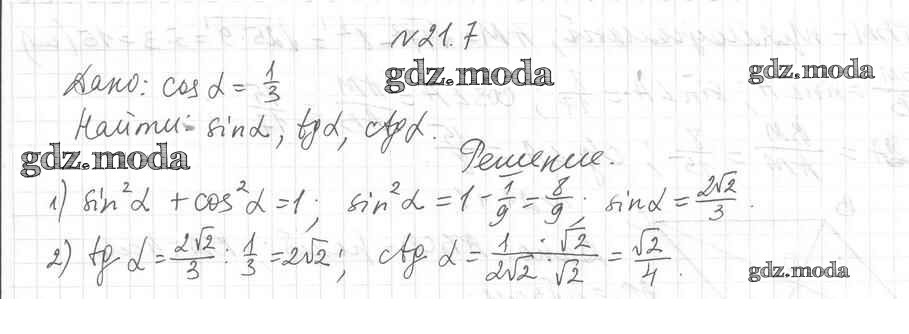 №21.7
Дано: cos α = 1/3
gdz.moda
gdz.moda
Найти: sin α, tg α, ctg α.
gdz.moda
Решение.
1) sin² α + cos² α = 1; sin² α = 1 - 1/9 = 8/9; sin α = 2√2/3.
2) tg α = 2√2/3 : 1/3 = 2√2; ctg α = 1 · √2/2√2 · √2 = √2/4.
gdz.moda